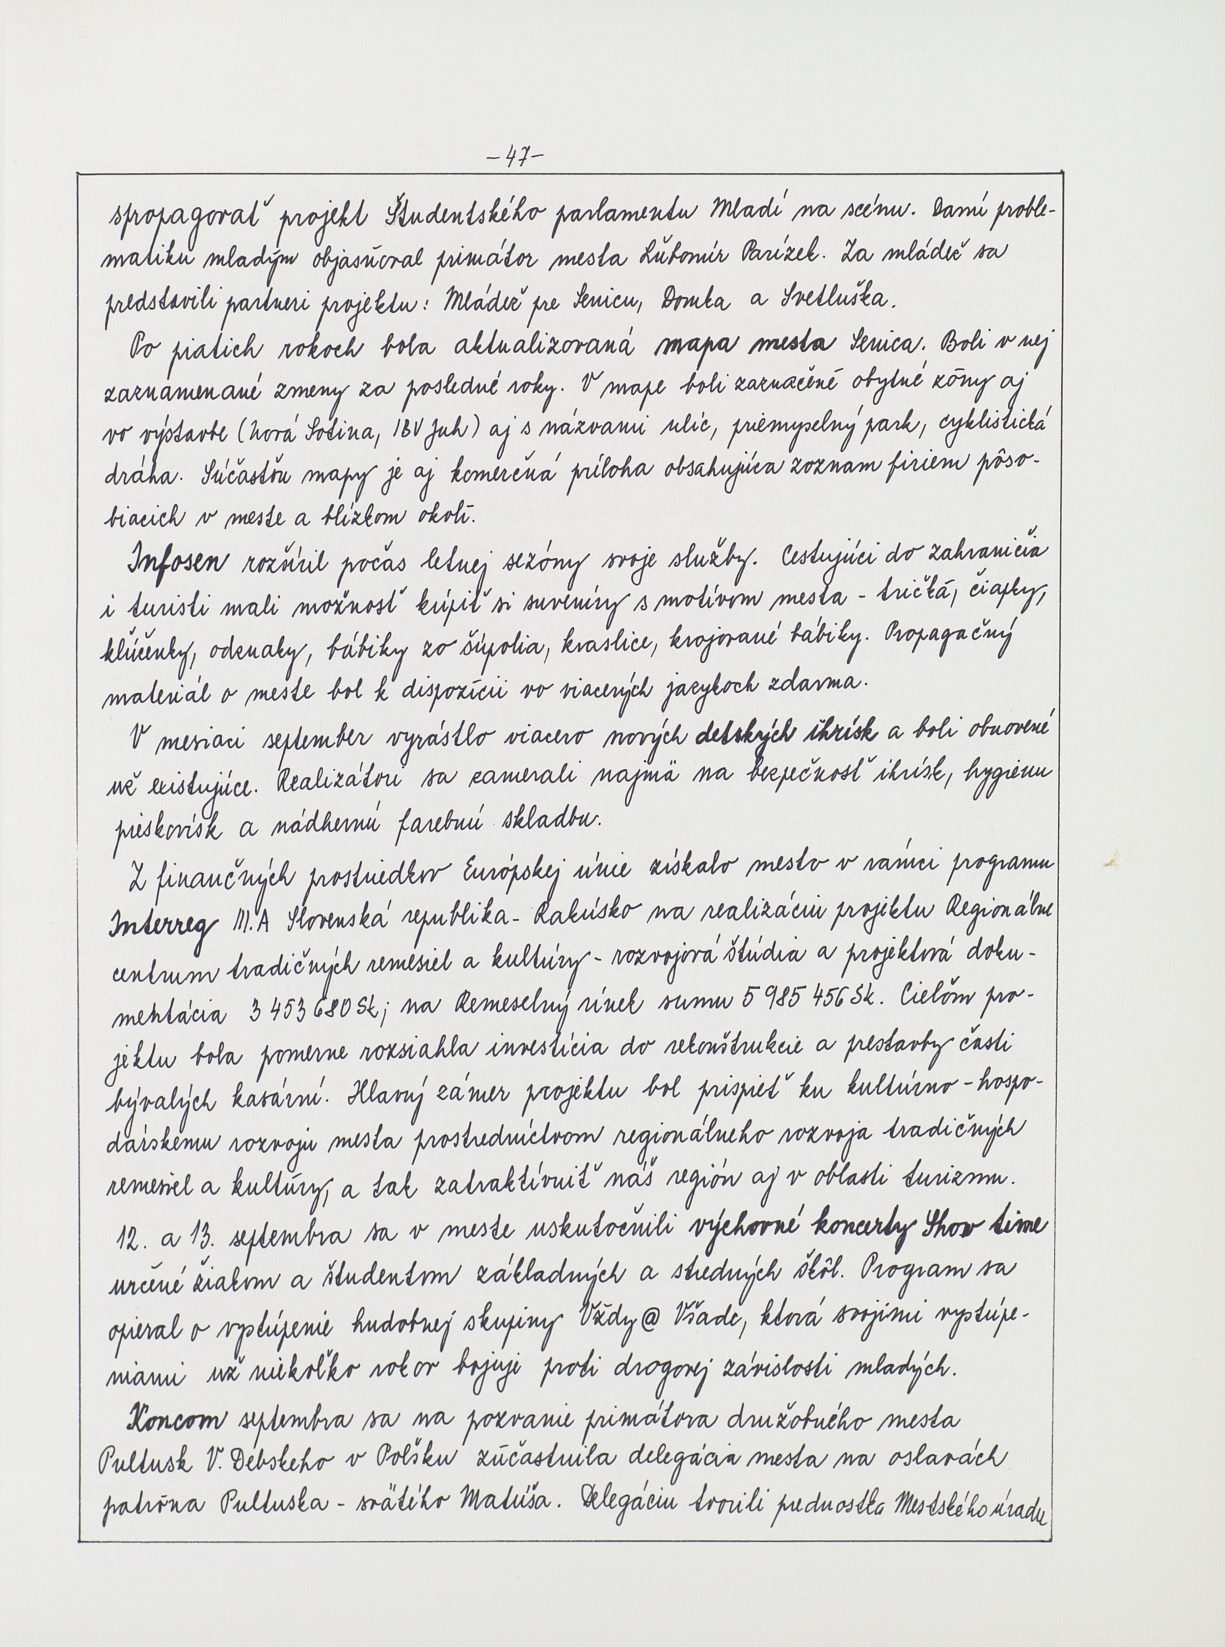 -47-
spropagovať projekt Študentského parlamentu Mladí na scénu. Danú proble-
matiku mladým objasňoval primátor mesta Ľubomír Parízek. Za mládež sa
predstavili partneri projektu: Mládež pre Senicu, Domka a Svetluška.
Po piatich rokoch bola aktualizovaná mapa mesta Senica. Boli v nej
zaznamenané zmeny za posledné roky. V mape boli zaznačené obytné zóny aj
vo výstavbe (horá Sotina, IBV Juh) aj s názvami ulíc, priemyselný park, cyklistická
dráha. Súčasťou mapy je aj komerčná príloha obsahujúca zoznam firiem pôso-
biacich v meste a blízkom okolí.
Infosen rozšíril počas letnej sezóny svoje služby. Cestujúci do zahraničia
i turisti mali možnosť kúpiť si suveníry s motívom mesta - tričká, čiapky,
kľúčenky, odznaky, bábiky zo šúpolia, kraslice, krojované bábiky. Propagačný
materiál o meste bol k dispozícii vo viacerých jazykoch zdarma.
V mesiaci september vyrástlo viacero nových detských ihrísk a boli obnovené
už existujúce. Realizátori sa zamerali najmä na bezpečnosť ihrísk, hygienu
pieskovísk a nádhernú farebnú skladbu.
Z finančných prostriedkov Európskej únie získalo mesto v rámci programu
Interreg III.A Slovenská republika - Rakúsko na realizáciu projektu Regionálne
centrum tradičných remesiel a kultúry - rozvojová štúdia a projektová doku-
mentácia 3 453 680 Sk; na Remeselný rínek sumu 5 985 456 Sk. Cieľom pro-
jektu bola pomerne rozsiahla investícia do rekonštrukcie a prestavby časti
bývalých kasární. Hlavný zámer projektu bol prispieť ku kultúrno - hospo-
dárskemu rozvoju mesta prostredníctvom regionálneho rozvoja tradičných
remesiel a kultúry, a tak zatraktívniť náš región aj v oblasti turizmu.
12. a 13. septembra sa v meste uskutočnili výchovné koncerty Show time
určené žiakom a študentom základných a stredných škôl. Program sa
opieral o vystúpenie hudobnej skupiny Vždy @ Všade, ktorá svojimi vystúpe-
niami už niekoľko rokov bojuje proti drogovej závislosti mladých.
Koncom septembra sa na pozvanie primátora družobného mesta
Pultusk V. Debskeho v Poľsku zúčastnila delegácia mesta na oslavách
patróna Pultuska - svätého Matúša. Delegáciu tvorili prednostka Mestského úradu